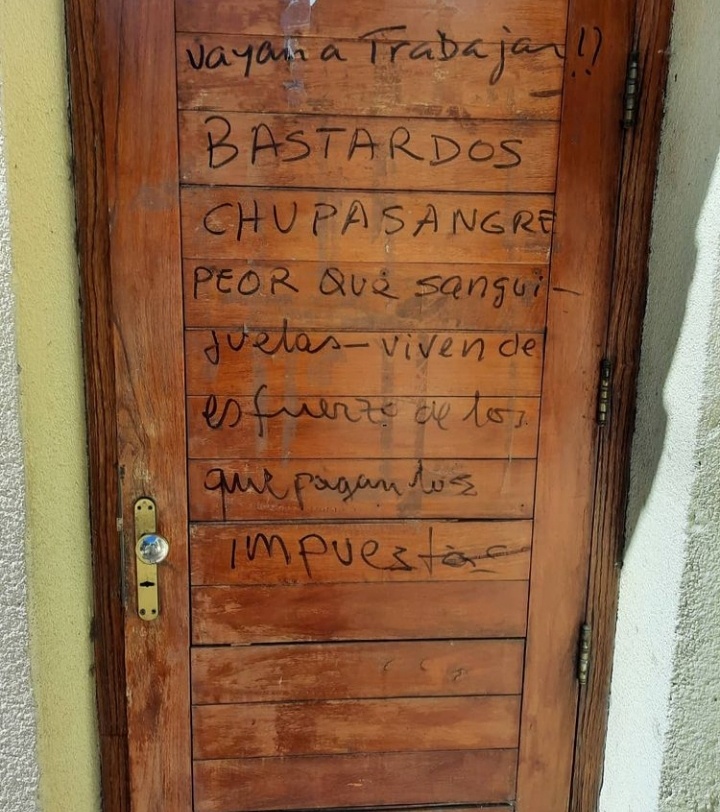 vayan a Trabajar!!
BASTARDOS
CHUPASANGRE
PEOR QUE sangui-
juelas-viven de
esfuerzo de los
que pagan los
IMPUEStos